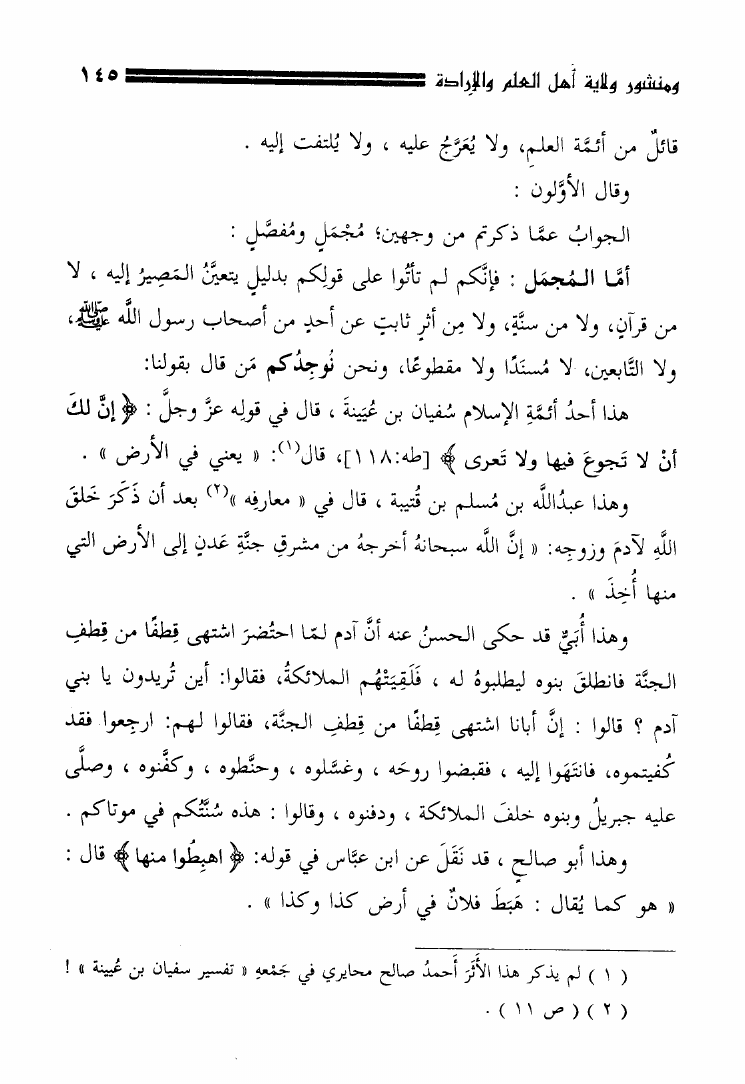 ومنشور ولاية أهل العلم والإرادة ١٤٥
قائلٌ من أئمَّة العلمِ، ولا يُعَرَّجُ عليه ، ولا يُلتفت إليه .
وقال الأوَّلون :
الجوابُ عمَّا ذكرتم من وجهين؛ مُجْمَلٍ ومُفصَّلٍ :
أمَّا المُجمَل : فإنَّكم لم تأتُوا على قولِكم بدليلٍ يتعيَّنُ المَصِيرُ إليه ، لا
من قرآنٍ، ولا من سنَّةٍ، ولا مِن أثرٍ ثابتٍ عن أحدٍ من أصحاب رسول اللَّه ﷺ،
ولا التَّابعين، لا مُسنَدًا ولا مقطوعًا، ونحن نُوجِدُكم مَن قال بقولنا:
هذا أحدُ أئمَّةِ الإسلام سُفيان بن عُيَينةَ ، قال في قولِه عزَّ وجلَّ : ﴿ إنَّ لكَ
أنْ لا تَجوعَ فيها ولا تَعرى ﴾ [طه:١١٨]، قال(١): « يعني في الأرض » .
وهذا عبدُاللَّه بن مُسلم بن قُتيبة ، قال في « معارفِه »(٢) بعد أن ذَكَرَ خَلقَ
اللَّهِ لآدمَ وزوجِه: « إنَّ اللَّه سبحانهُ أخرجهُ من مشرقِ جنَّةِ عَدنٍ إلى الأرض التي
منها أُخِذَ » .
وهذا أُبَيٌّ قد حكى الحسنُ عنه أنَّ آدم لمّا احتُضرَ اشتهى قِطفًا من قِطفِ
الجنَّة فانطلقَ بنوه ليطلبوهُ له ، فَلَقِيَتْهُم الملائكةُ، فقالوا: أين تُريدون يا بني
آدم ؟ قالوا : إنَّ أبانا اشتهى قِطفًا من قِطفِ الجنَّة، فقالوا لهم: ارجعوا فقد
كُفيتموه، فانتَهَوا إليه ، فقبضوا روحَه ، وغسَّلوه ، وحنَّطوه ، وكفَّنوه ، وصلَّى
عليه جبريلُ وبنوه خلفَ الملائكة ، ودفنوه ، وقالوا : هذه سُنَّتُكم في موتاكم .
وهذا أبو صالحٍ ، قد نَقَلَ عن ابن عبَّاس في قوله: ﴿ اهبِطُوا منها﴾ قال :
« هو كما يُقال : هَبَطَ فلانٌ في أرض كذا وكذا » .
( ١ ) لم يذكر هذا الأَثَرَ أَحمدُ صالح محايري في جَمْعهِ « تفسير سفيان بن عُيينة » !
( ٢ ) ( ص ١١ ) .